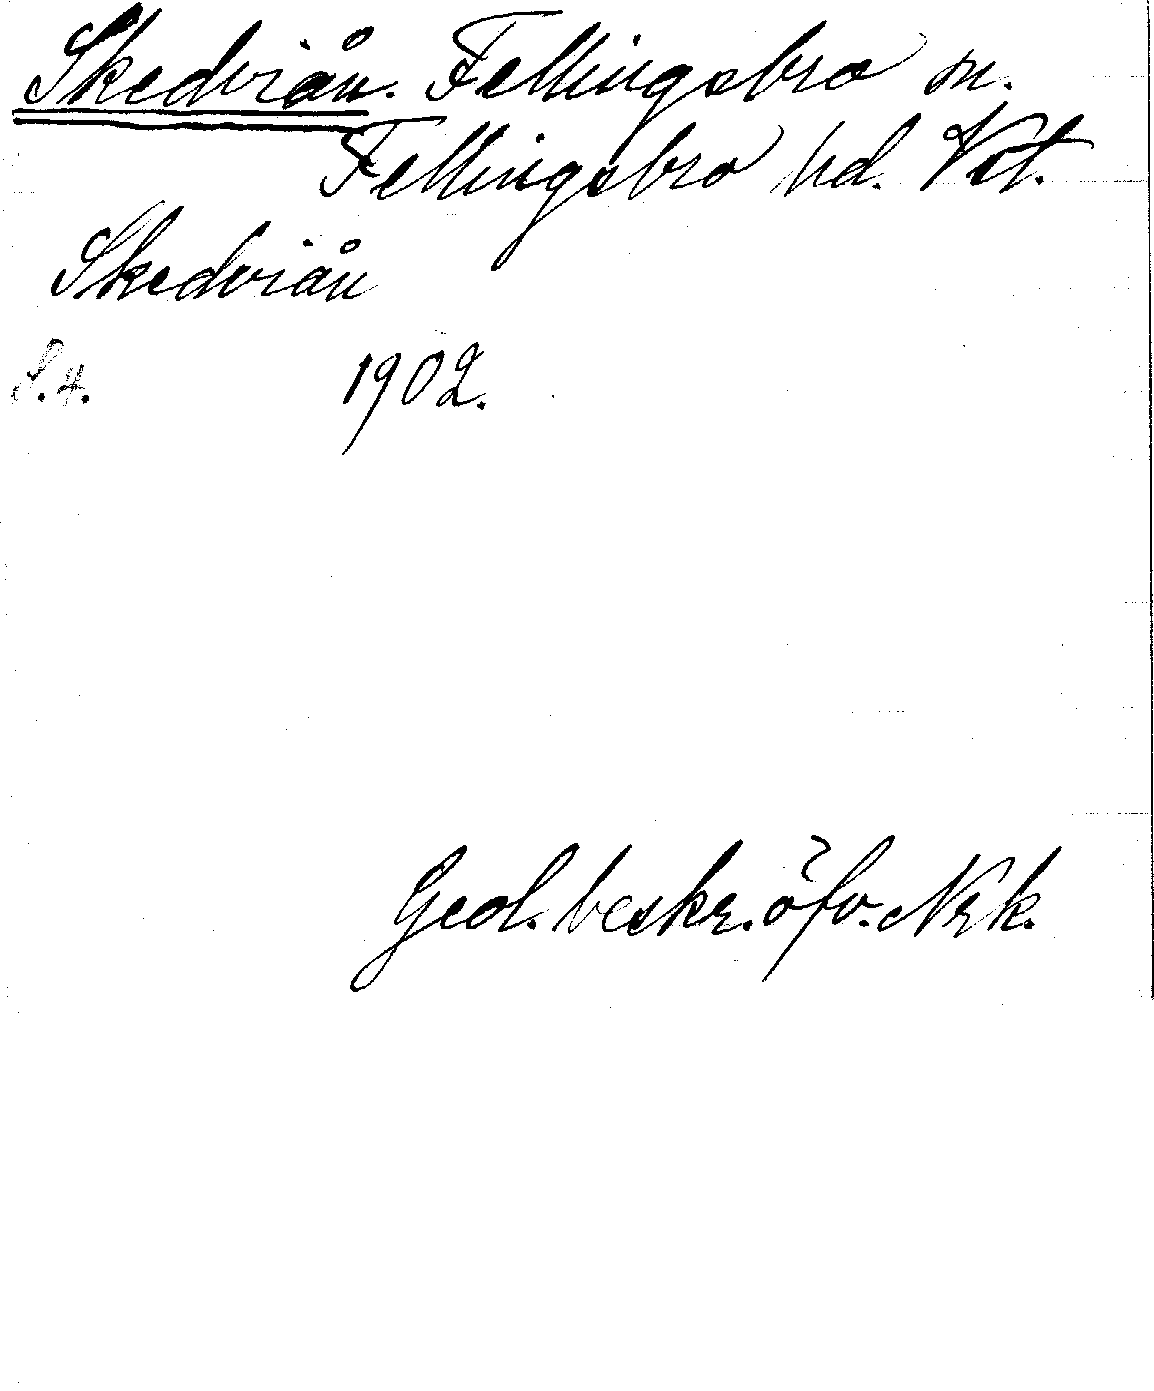 Skedviån. Fellingsbro sn.
Fellingsbro hd. Vst.
Skedviån
S. 4. 1902.
Geol. beskr. öfv. Nrk.